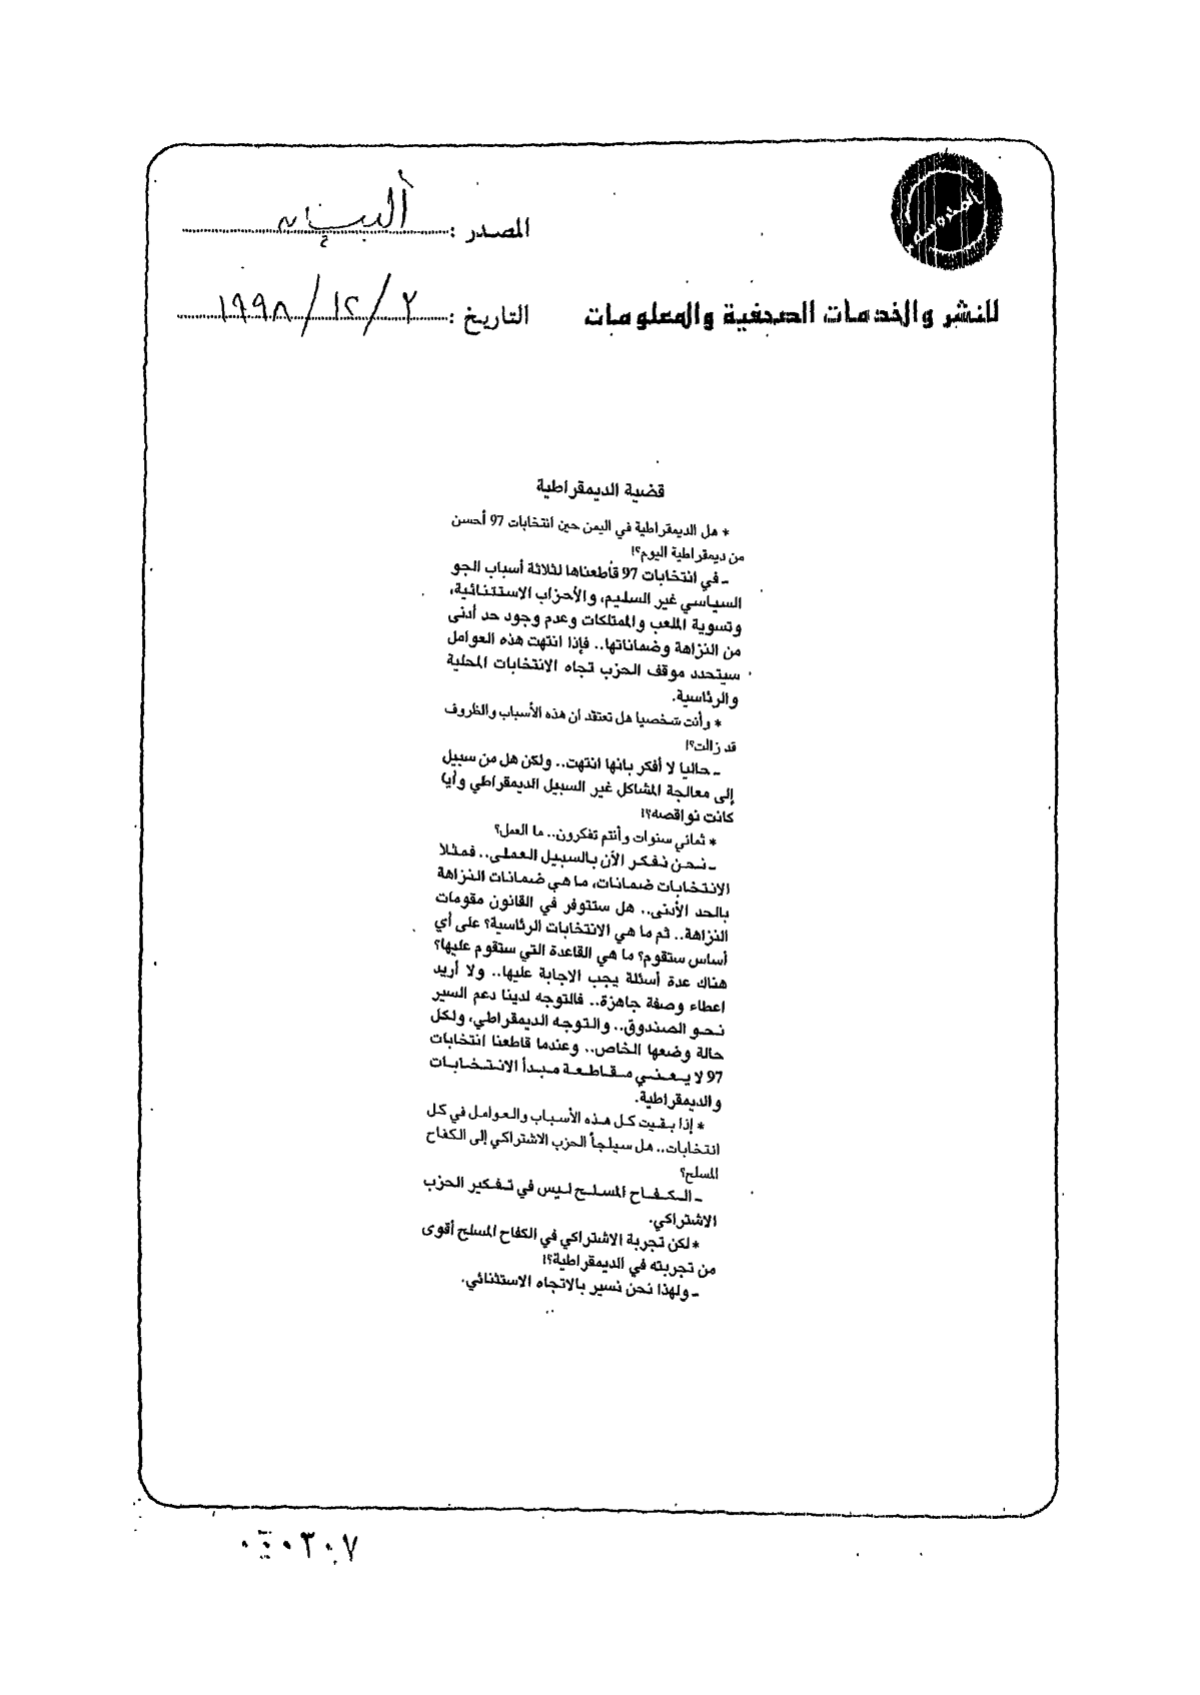 المصدر : البيان
للنشر والخدمات الصحفية والمعلومات
التاريخ : ٢ / ١٢ / ١٩٩٨
قضية الديمقراطية
* هل الديمقراطية في اليمن حين انتخابات 97 أحسن
من ديمقراطية اليوم؟!
ـ في انتخابات 97 قاطعناها لثلاثة أسباب الجو
السياسي غير السليم، والأحزاب الاستثنائية،
وتسوية الملعب والممتلكات وعدم وجود حد أدنى
من النزاهة وضماناتها.. فإذا انتهت هذه العوامل
سيتحدد موقف الحزب تجاه الانتخابات المحلية
والرئاسية.
* وأنت شخصيا هل تعتقد ان هذه الأسباب والظروف
قد زالت؟!
ـ حاليا لا أفكر بانها انتهت.. ولكن هل من سبيل
إلى معالجة المشاكل غير السبيل الديمقراطي وأيا
كانت نواقصه؟!
* ثماني سنوات وأنتم تفكرون.. ما العمل؟
ـ نحن نفكر الآن بالسبيل العملى.. فمثلا
الانتخابات ضمانات، ما هي ضمانات النزاهة
بالحد الأدنى.. هل ستتوفر في القانون مقومات
النزاهة.. ثم ما هي الانتخابات الرئاسية؟ على أي
أساس ستقوم؟ ما هي القاعدة التي ستقوم عليها؟
هناك عدة أسئلة يجب الإجابة عليها.. ولا أريد
اعطاء وصفة جاهزة.. فالتوجه لدينا دعم السير
نحو الصندوق.. والتوجه الديمقراطي، ولكل
حالة وضعها الخاص.. وعندما قاطعنا انتخابات
97 لا يعني مقاطعة مبدأ الانتخابات
والديمقراطية.
* إذا بقيت كل هذه الأسباب والعوامل في كل
انتخابات.. هل سيلجأ الحزب الاشتراكي إلى الكفاح
المسلح؟
ـ الكفاح المسلح ليس في تفكير الحزب
الاشتراكي.
* لكن تجربة الاشتراكي في الكفاح المسلح أقوى
من تجربته في الديمقراطية؟!
ـ ولهذا نحن نسير بالاتجاه الاستثنائي.